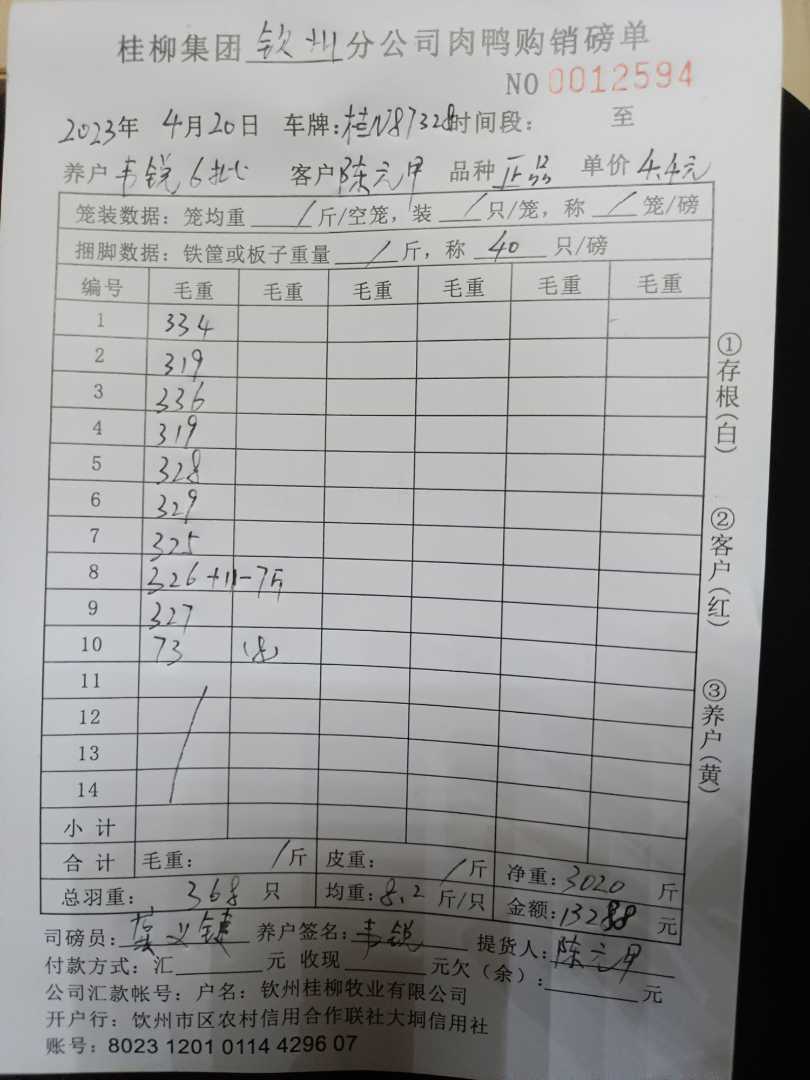 桂柳集团钦州分公司肉鸭购销磅单
NO 0012594
2023年 4月20日 车牌:桂N87328时间段: 至
养户韦锐6批 客户陈元甲 品种正品 单价4.4元
笼装数据:笼均重 / 斤/空笼,装 / 只/笼,称 / 笼/磅
捆脚数据:铁筐或板子重量 / 斤,称 40 只/磅
编号 毛重 毛重 毛重 毛重 毛重 毛重
1 334
2 319
3 336
4 319
5 328
6 329
7 325
8 326+11-7斤
9 327
10 73 (8)
11
12
13
14
小计
合计 毛重: /斤 皮重: /斤 净重:3020 斤
总羽重: 368 只 均重:8.2 斤/只 金额:13288 元
司磅员:龚义键 养户签名:韦锐 提货人:陈元甲
付款方式:汇 元 收现 元欠(余): 元
公司汇款帐号:户名:钦州桂柳牧业有限公司
开户行:钦州市区农村信用合作联社大垌信用社
账号:8023 1201 0114 4296 07
①存根(白)
②客户(红)
③养户(黄)